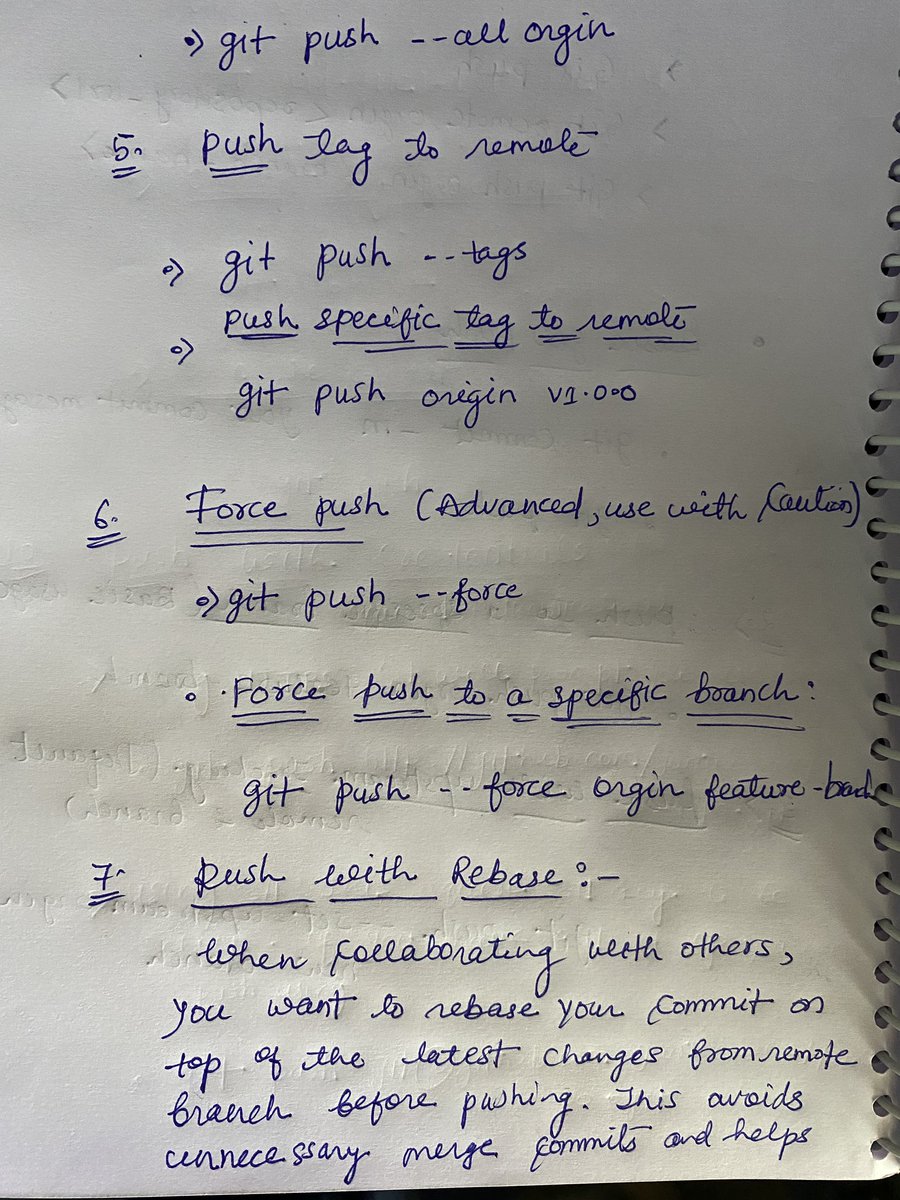 git push --all orgin
5. push tag to remote
git push --tags
push specific tag to remote
git push origin v1.0.0
6. Force push (Advanced, use with Caution)
git push --force
Force push to a specific branch:
git push --force orgin feature-brach
7. push with Rebase:-
When collaborating with others,
you want to rebase your commit on
top of the latest changes from remote
branch before pushing. This avoids
unnecessary merge commits and helps